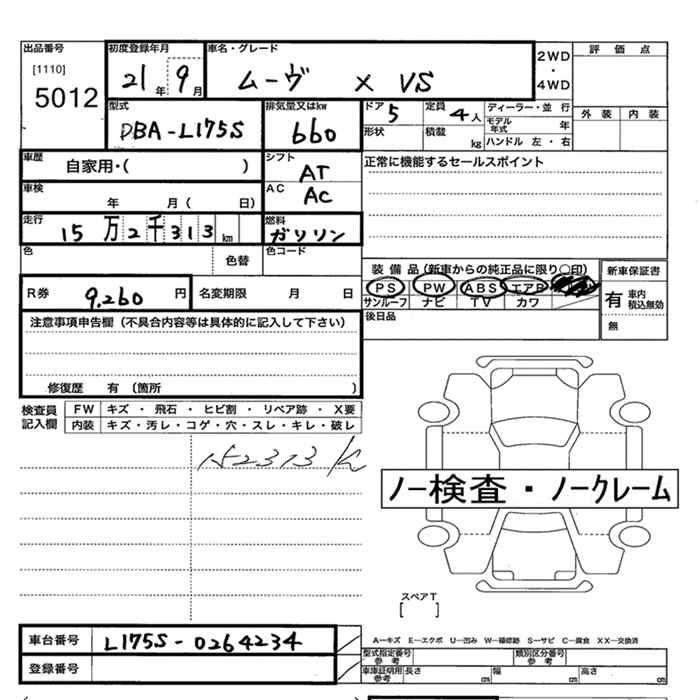 出品番号
[1110]
5012
初度登録年月
21年 9月
車名・グレード
ムーヴ X VS
2WD
・
4WD
評価点
外装 内装
型式
DBA-L175S
排気量又はkw
660
ドア 5
定員 4人
形状
積載 kg
ディーラー・並 行
モデル年式 年
ハンドル 左・右
車歴 自家用・( )
シフト AT
車検 年 月( 日)
AC AC
走行 15万2千313km
燃料 ガソリン
色 色替
色コード
正常に機能するセールスポイント
R券 9,260 円
名変期限 月 日
装備品(新車からの純正品に限り○印)
PS PW ABS エアB
サンルーフ ナビ TV カワ
後日品
新車保証書
有 車内積込無効
無
注意事項申告欄(不具合内容等は具体的に記入して下さい)
修復歴 有(箇所 )
検査員記入欄
FW キズ・飛石・ヒビ割・リペア跡・X要
内装 キズ・汚レ・コゲ・穴・スレ・キレ・破レ
152313K
ノー検査・ノークレーム
スペアT
[ ]
車台番号 L175S-0264234
登録番号
A−キズ E−エクボ U−凹み W−補修跡 S−サビ C−腐食 XX−交換済
型式指定番号参考
類別区分番号参考
車庫証明用参考 長さ cm 幅 cm 高さ cm